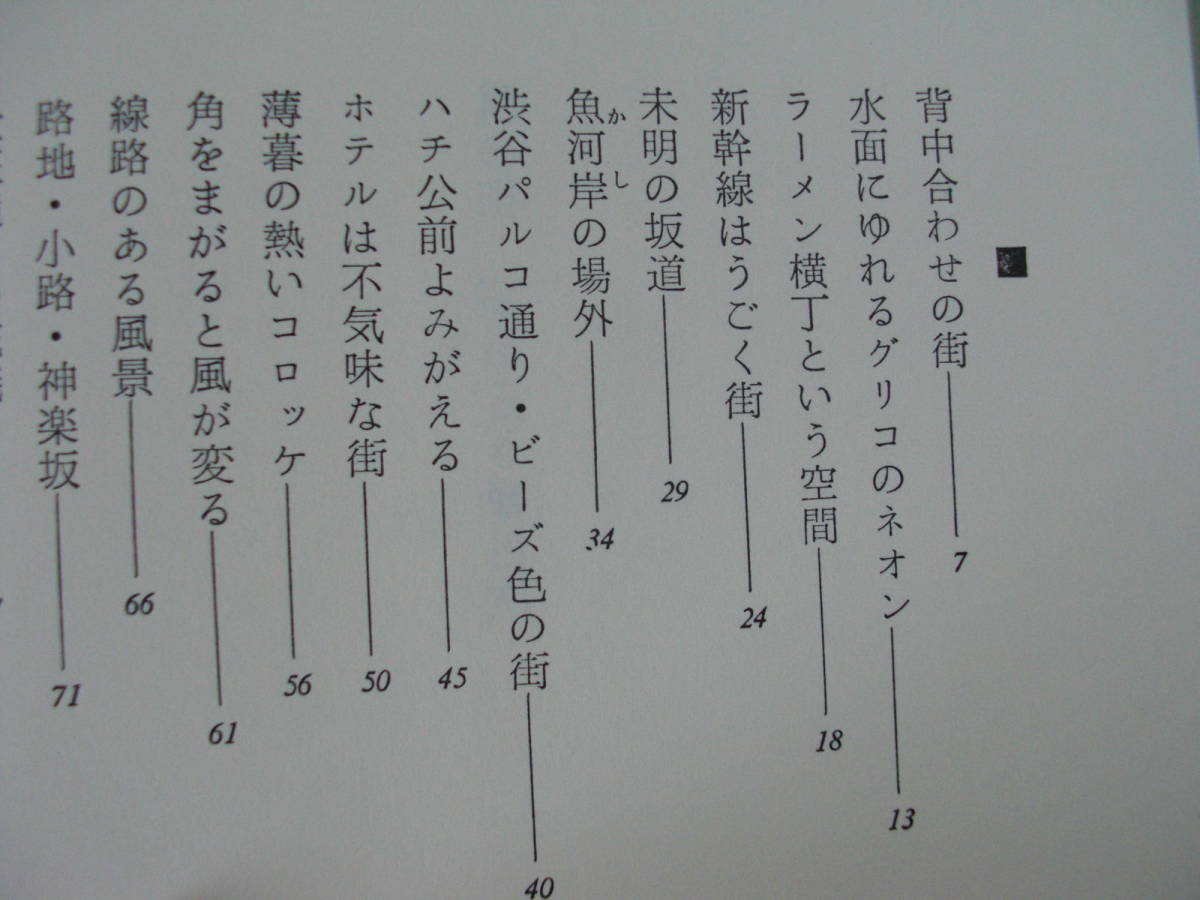 ■
背中合わせの街 7
水面にゆれるグリコのネオン 13
ラーメン横丁という空間 18
新幹線はうごく街 24
未明の坂道 29
魚河岸の場外 34
かし
渋谷パルコ通り・ビーズ色の街 40
ハチ公前よみがえる 45
ホテルは不気味な街 50
薄暮の熱いコロッケ 56
角をまがると風が変る 61
線路のある風景 66
路地・小路・神楽坂 71